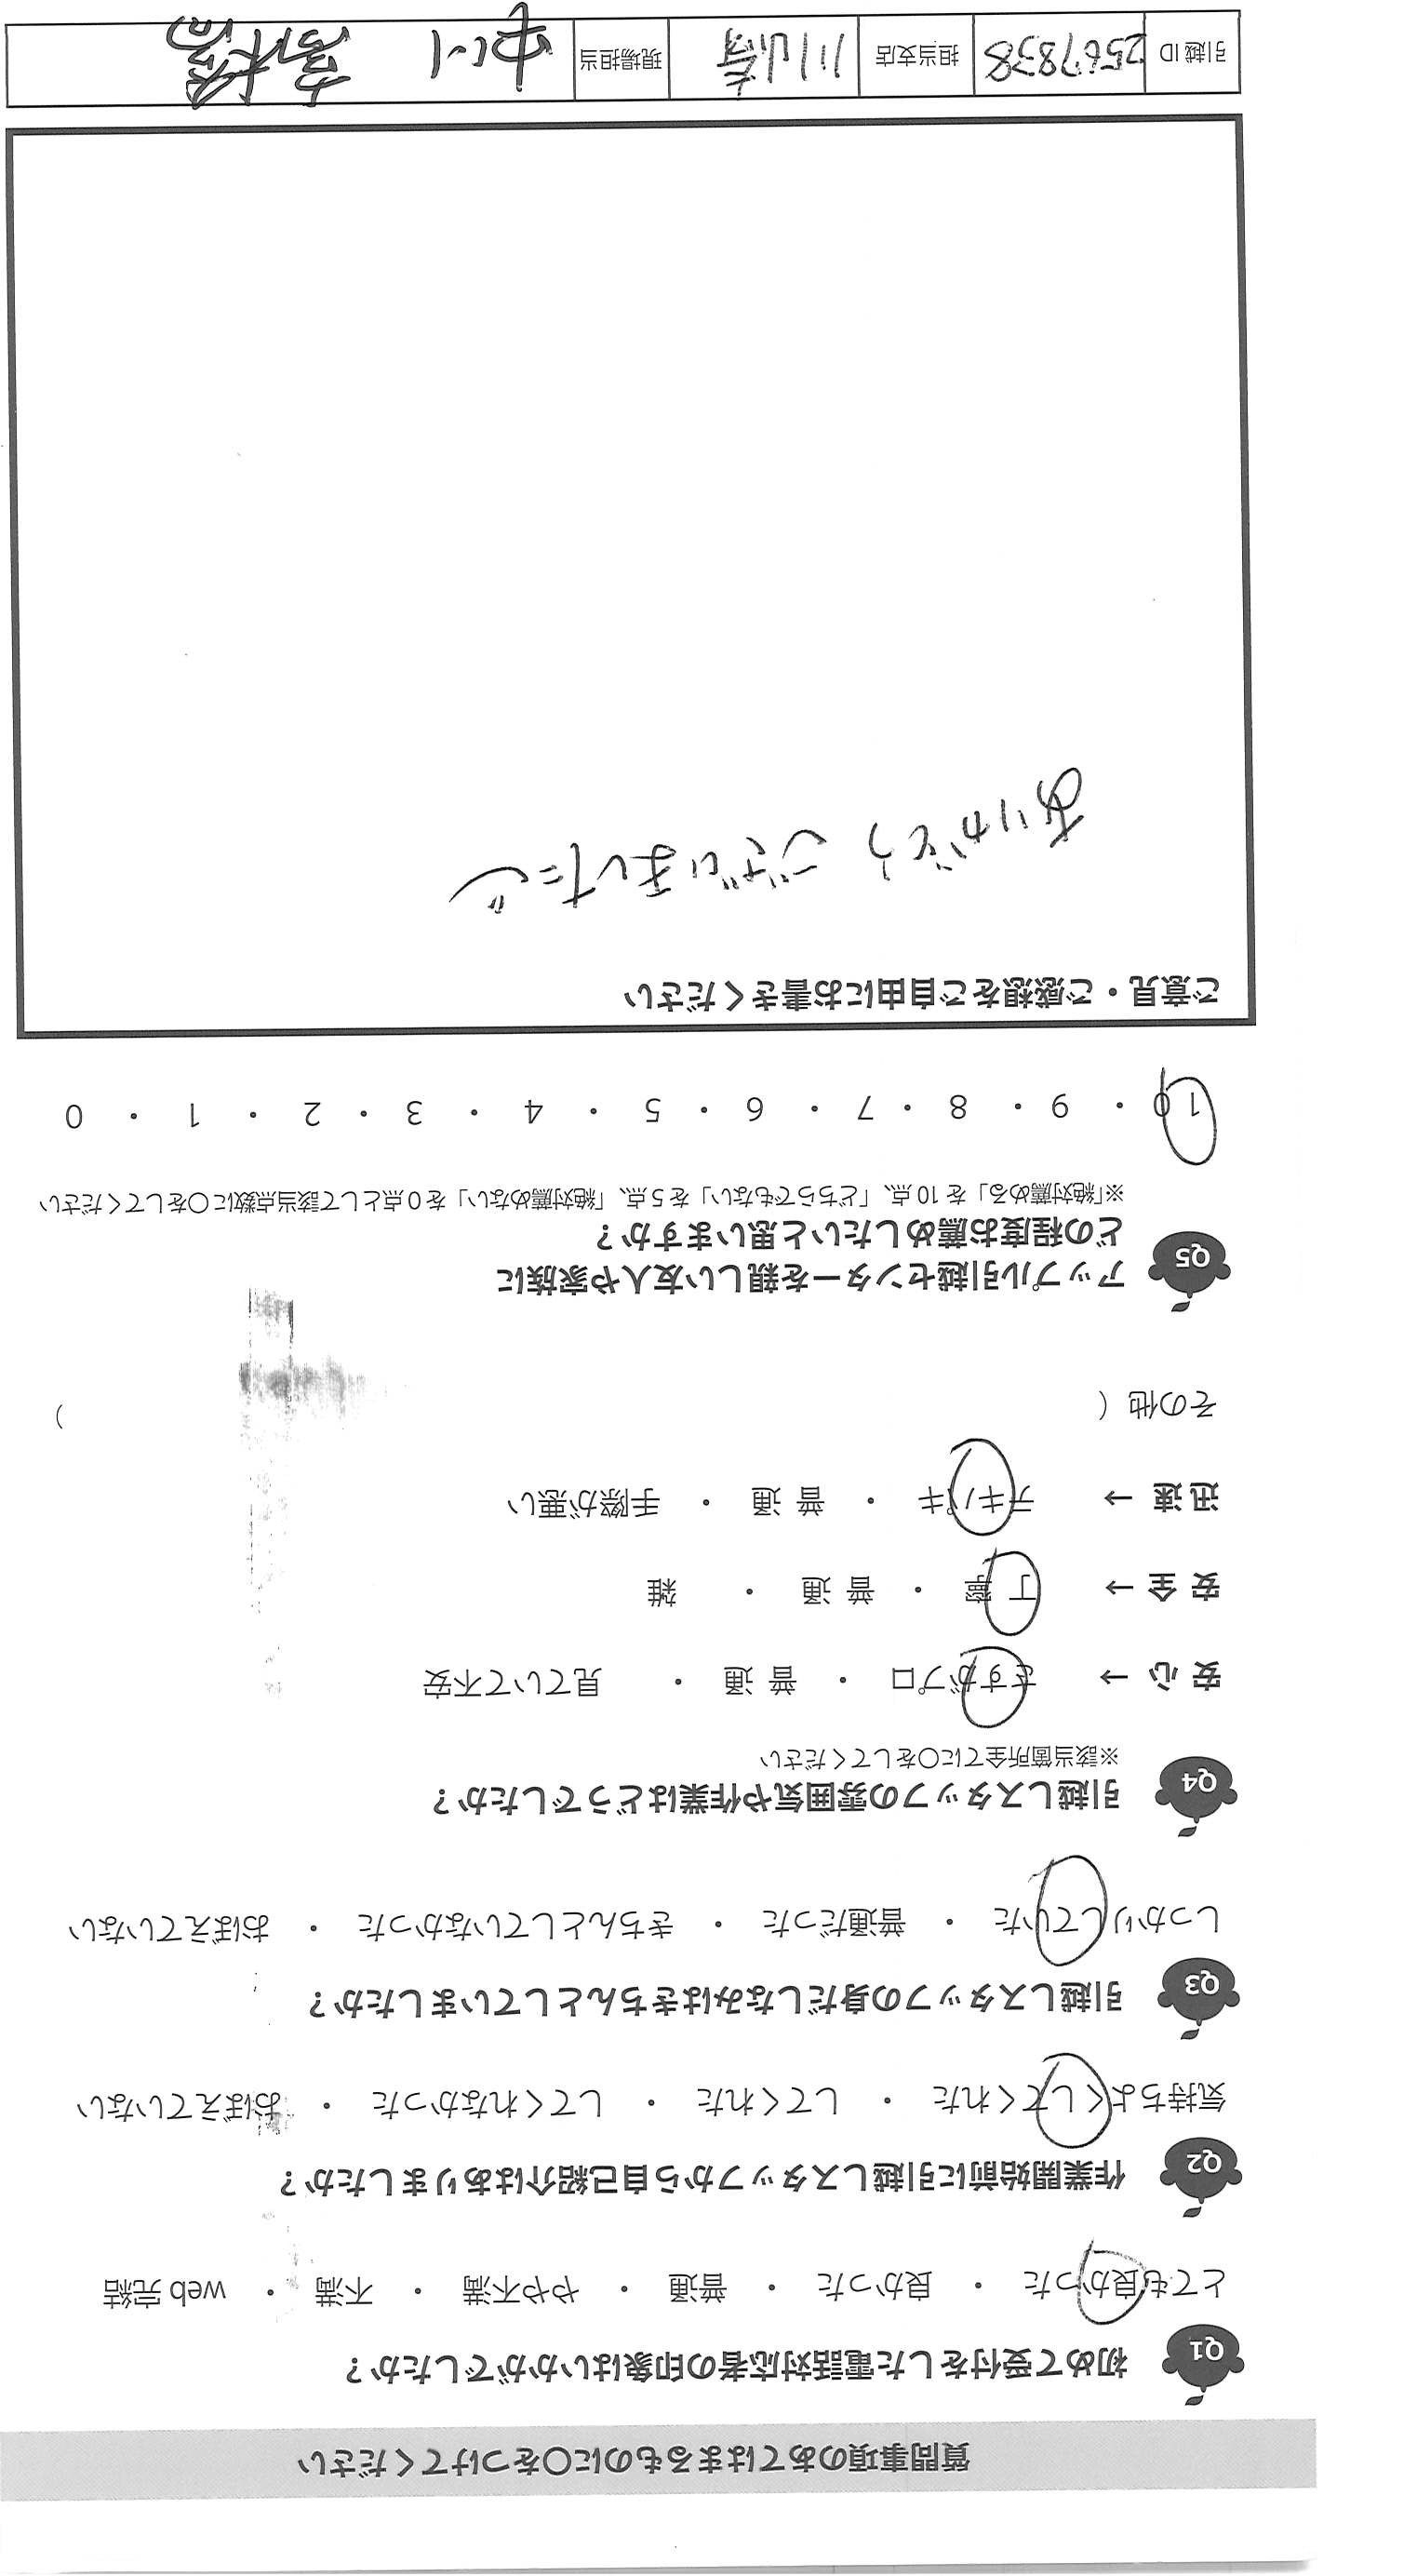 質問事項のあてはまるものに○をつけてください
Q1 初めて受付をした電話対応者の印象はいかがでしたか？
とても良かった ・ 良かった ・ 普通 ・ やや不満 ・ 不満 ・ web 完結
Q2 作業開始前に引越しスタッフから自己紹介はありましたか？
気持ちよくしてくれた ・ してくれた ・ してくれなかった ・ おぼえていない
Q3 引越しスタッフの身だしなみはきちんとしていましたか？
しっかりしていた ・ 普通だった ・ きちんとしていなかった ・ おぼえていない
Q4 引越しスタッフの雰囲気や作業はどうでしたか？
※該当箇所全てに○をしてください
安 心 → さすがプロ ・ 普 通 ・ 見ていて不安
安 全 → 丁 寧 ・ 普 通 ・ 雑
迅 速 → テキパキ ・ 普 通 ・ 手際が悪い
その他（ ）
Q5 アップル引越センターを親しい友人や家族に
どの程度お薦めしたいと思いますか？
※「絶対薦める」を 10 点、「どちらでもない」を 5 点、「絶対薦めない」を 0 点として該当点数に○をしてください
10 ・ 9 ・ 8 ・ 7 ・ 6 ・ 5 ・ 4 ・ 3 ・ 2 ・ 1 ・ 0
ご意見・ご感想をご自由にお書きください
ありがとうございました
引越 ID 2567838 担当支店 川崎 現場担当 中川 高橋